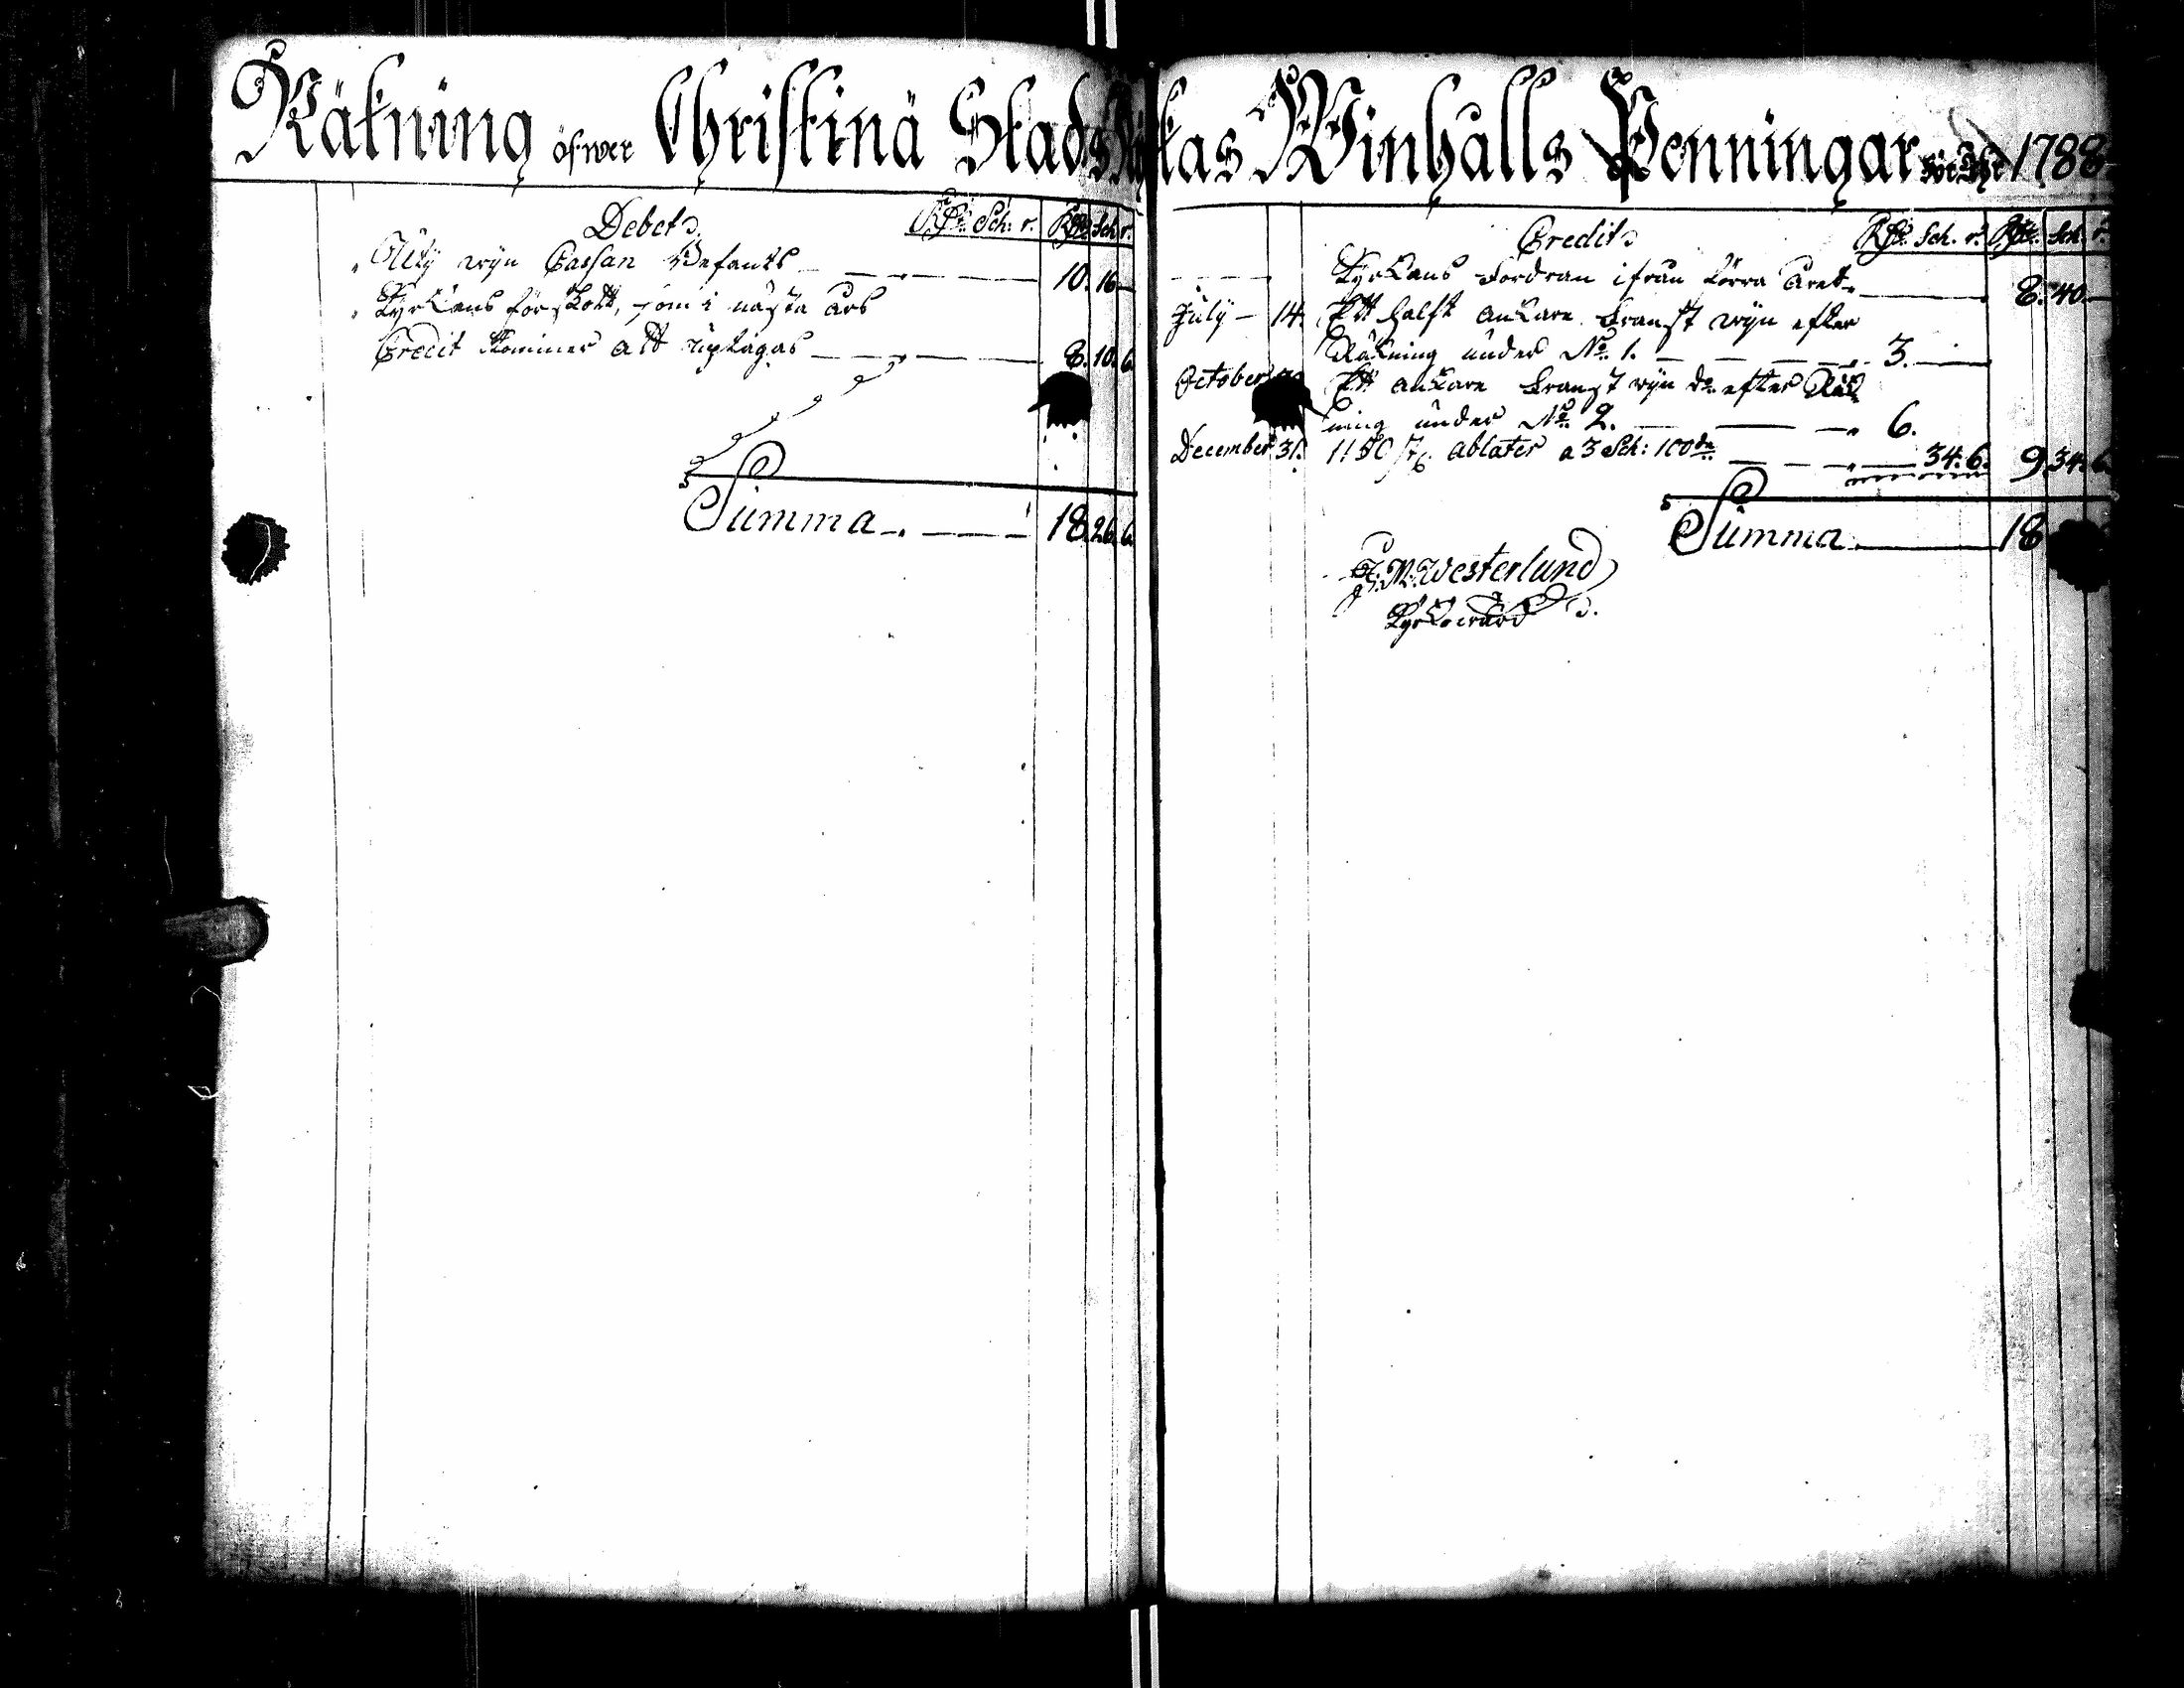 Räkning öfwer Christinä Stads Kyrkas Winhålls Penningar för Åhr 1788.
Debet
Rd:r Sch: r. Rd:r Sch r.
Uti wyn Cassan Befants 10. 16
Kyrkans förskott, som i nästa års
Credit kommer att uptagas 8. 10. 6
Summa 18. 26. 6
Credit
Rd:r Sch. r. Rd:r Sch. r.
Kyrkans Fordran ifrån förra året 8. 40
July 14. Ett halft anckare Franst wyn efter
Räkning under No 1. 3.
October Ett anckare Franst wyn do efter Räk
ning under No 2. 6.
December 31. 1150 st. ablater a 3 Sch: 100de 34. 6. 9. 34. 6
Summa 18
M: Westerlund
Kyrkoward